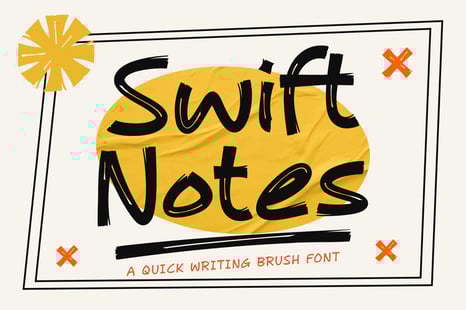 Swift
Notes
A QUICK WRITING BRUSH FONT